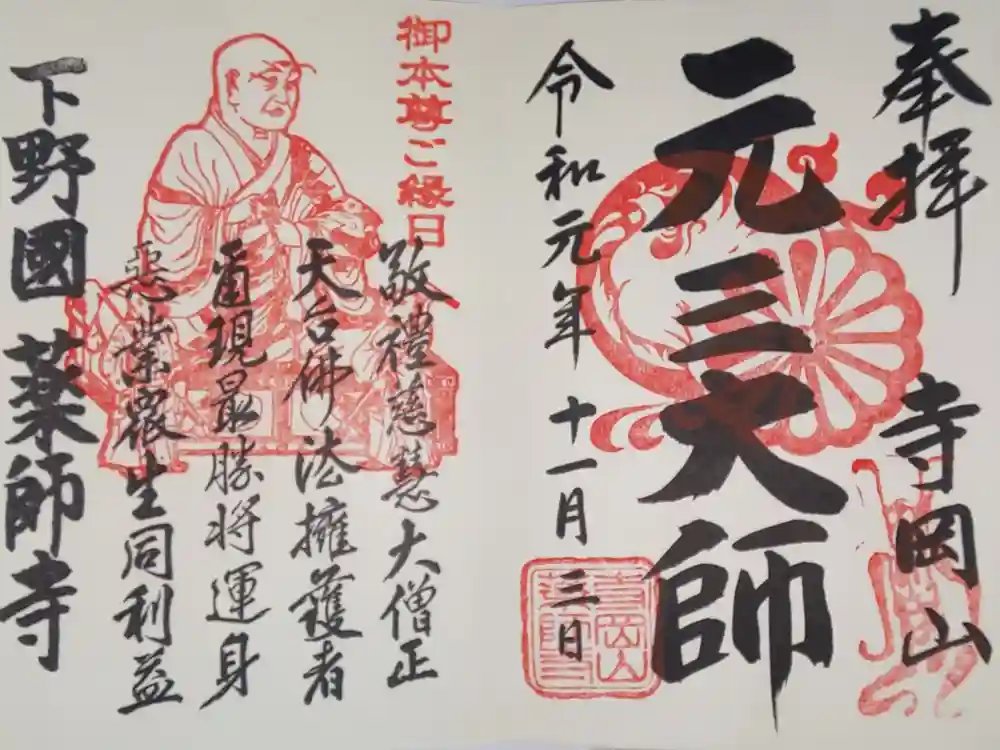 奉拝 寺岡山
元三大師
令和元年十一月三日
御本尊ご縁日
敬禮慈慧大僧正
天台佛法擁護者
示現最勝将運身
悪業衆生同利益
下野國 薬師寺